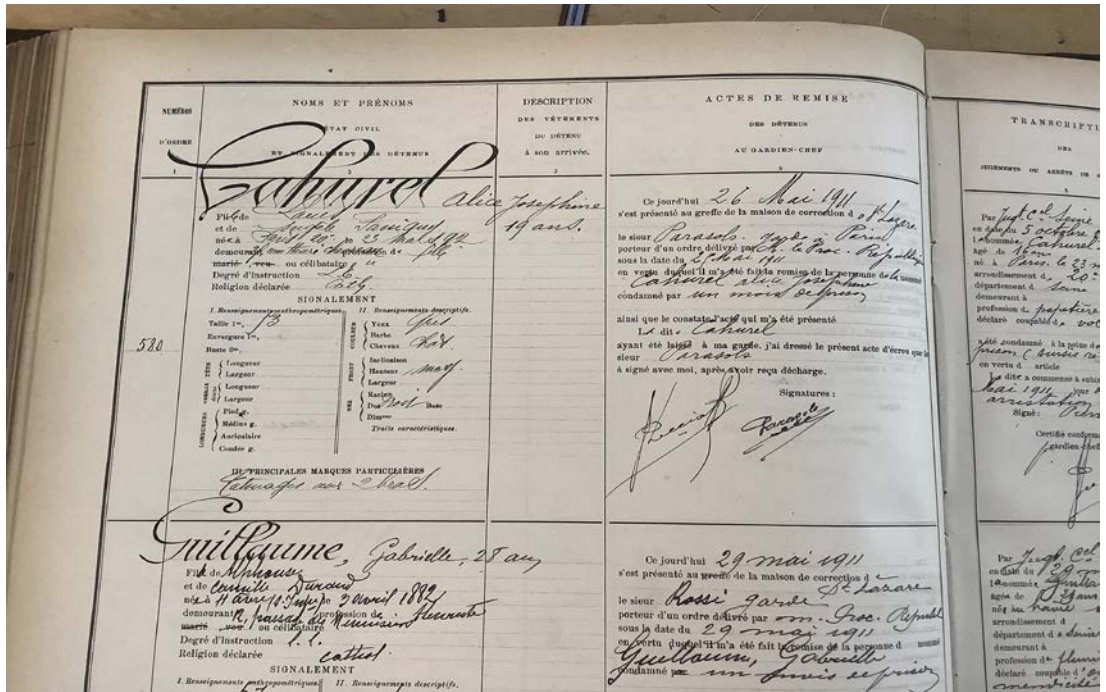 NUMÉROS
D'ORDRE
1
NOMS ET PRÉNOMS
ÉTAT CIVIL
ET SIGNALEMENT DES DÉTENUS
2
DESCRIPTION
DES VÊTEMENTS
DU DÉTENU
à son arrivée.
3
ACTES DE REMISE
DES DÉTENUS
AU GARDIEN-CHEF
4
TRANSCRIPTI
DES
JUGEMENTS OU ARRÊTS DE
5
580
Cahurel Alice Josephine
19 ans.
Fille de Louis
et de
née à Paris 20e le 23 mars 92
demeurant profession de
marié, veu ou célibataire
Degré d'Instruction
Religion déclarée Cath.
SIGNALEMENT
I. Renseignements anthropométriques.
Taille 1m,
Envergure 1m,
Buste 0m,
TÊTE
Longueur
Largeur
OREILLE DROITE
Longueur
Largeur
LONGUEURS
Pied g.
Médius g.
Auriculaire
Coudée g.
II. Renseignements descriptifs.
COULEUR
Yeux gris
Barbe
Cheveux chat.
FRONT
Inclinaison
Hauteur moy
Largeur
NEZ
Racine
Dos Base
Dimon
Traits caractéristiques.
III. PRINCIPALES MARQUES PARTICULIÈRES
Tatouages aux 2 bras.
Ce jourd'hui 26 Mai 1911
s'est présenté au greffe de la maison de correction d St Lazare
le sieur Parasols garde à Paris
porteur d'un ordre délivré par M. le Proc. République
sous la date du 26 Mai 1911
en vertu duquel il m'a été fait la remise de la personne de la nommé
Cahurel alice Josephine
condamné par un mois de prison
ainsi que le constate l'acte qui m'a été présenté
La dite Cahurel
ayant été laissé à ma garde, j'ai dressé le présent acte d'écrou que le
sieur Parasols
a signé avec moi, après avoir reçu décharge.
Signatures :
Parasols
Par Jugt Cel Seine
en date du 5 octobre
la nommée Cahurel
âgé de 18 ans
né à Paris. le 23 m
arrondissement d 20e
département d Seine
demeurant à
profession de papetière
déclaré coupable de vol
a été condamné à la peine de
prison (sursis
en vertu d article
La dite a commencé à subir
Mai 1911
arrestation
Signé :
Certifié conforme
gardien-chef
Guillaume, Gabrielle, 28 ans
Fille de Alphonse
et de Camille Durand
née à Havre (S. Infre) le 3 avril 1882
demeurant 12, passage des profession de fleuriste
marié, veu ou célibataire
Degré d'instruction
Religion déclarée cathol.
SIGNALEMENT
I. Renseignements anthropométriques.
II. Renseignements descriptifs.
Ce jourd'hui 29 mai 1911
s'est présenté au greffe de la maison de correction d St Lazare
le sieur Rossi garde
porteur d'un ordre délivré par m. Proc. Républ
sous la date du 29 mai 1911
en vertu duquel il m'a été fait la remise de la personne d
Guillaume, Gabrielle
condamné par un mois de prison
Par Jugt Cel
en date du 29 m
la nommée Guillau
âgée de 28 ans
née au havre
arrondissement d
département d Seine
demeurant à
profession de fleuri
déclaré coupable d
mendicité